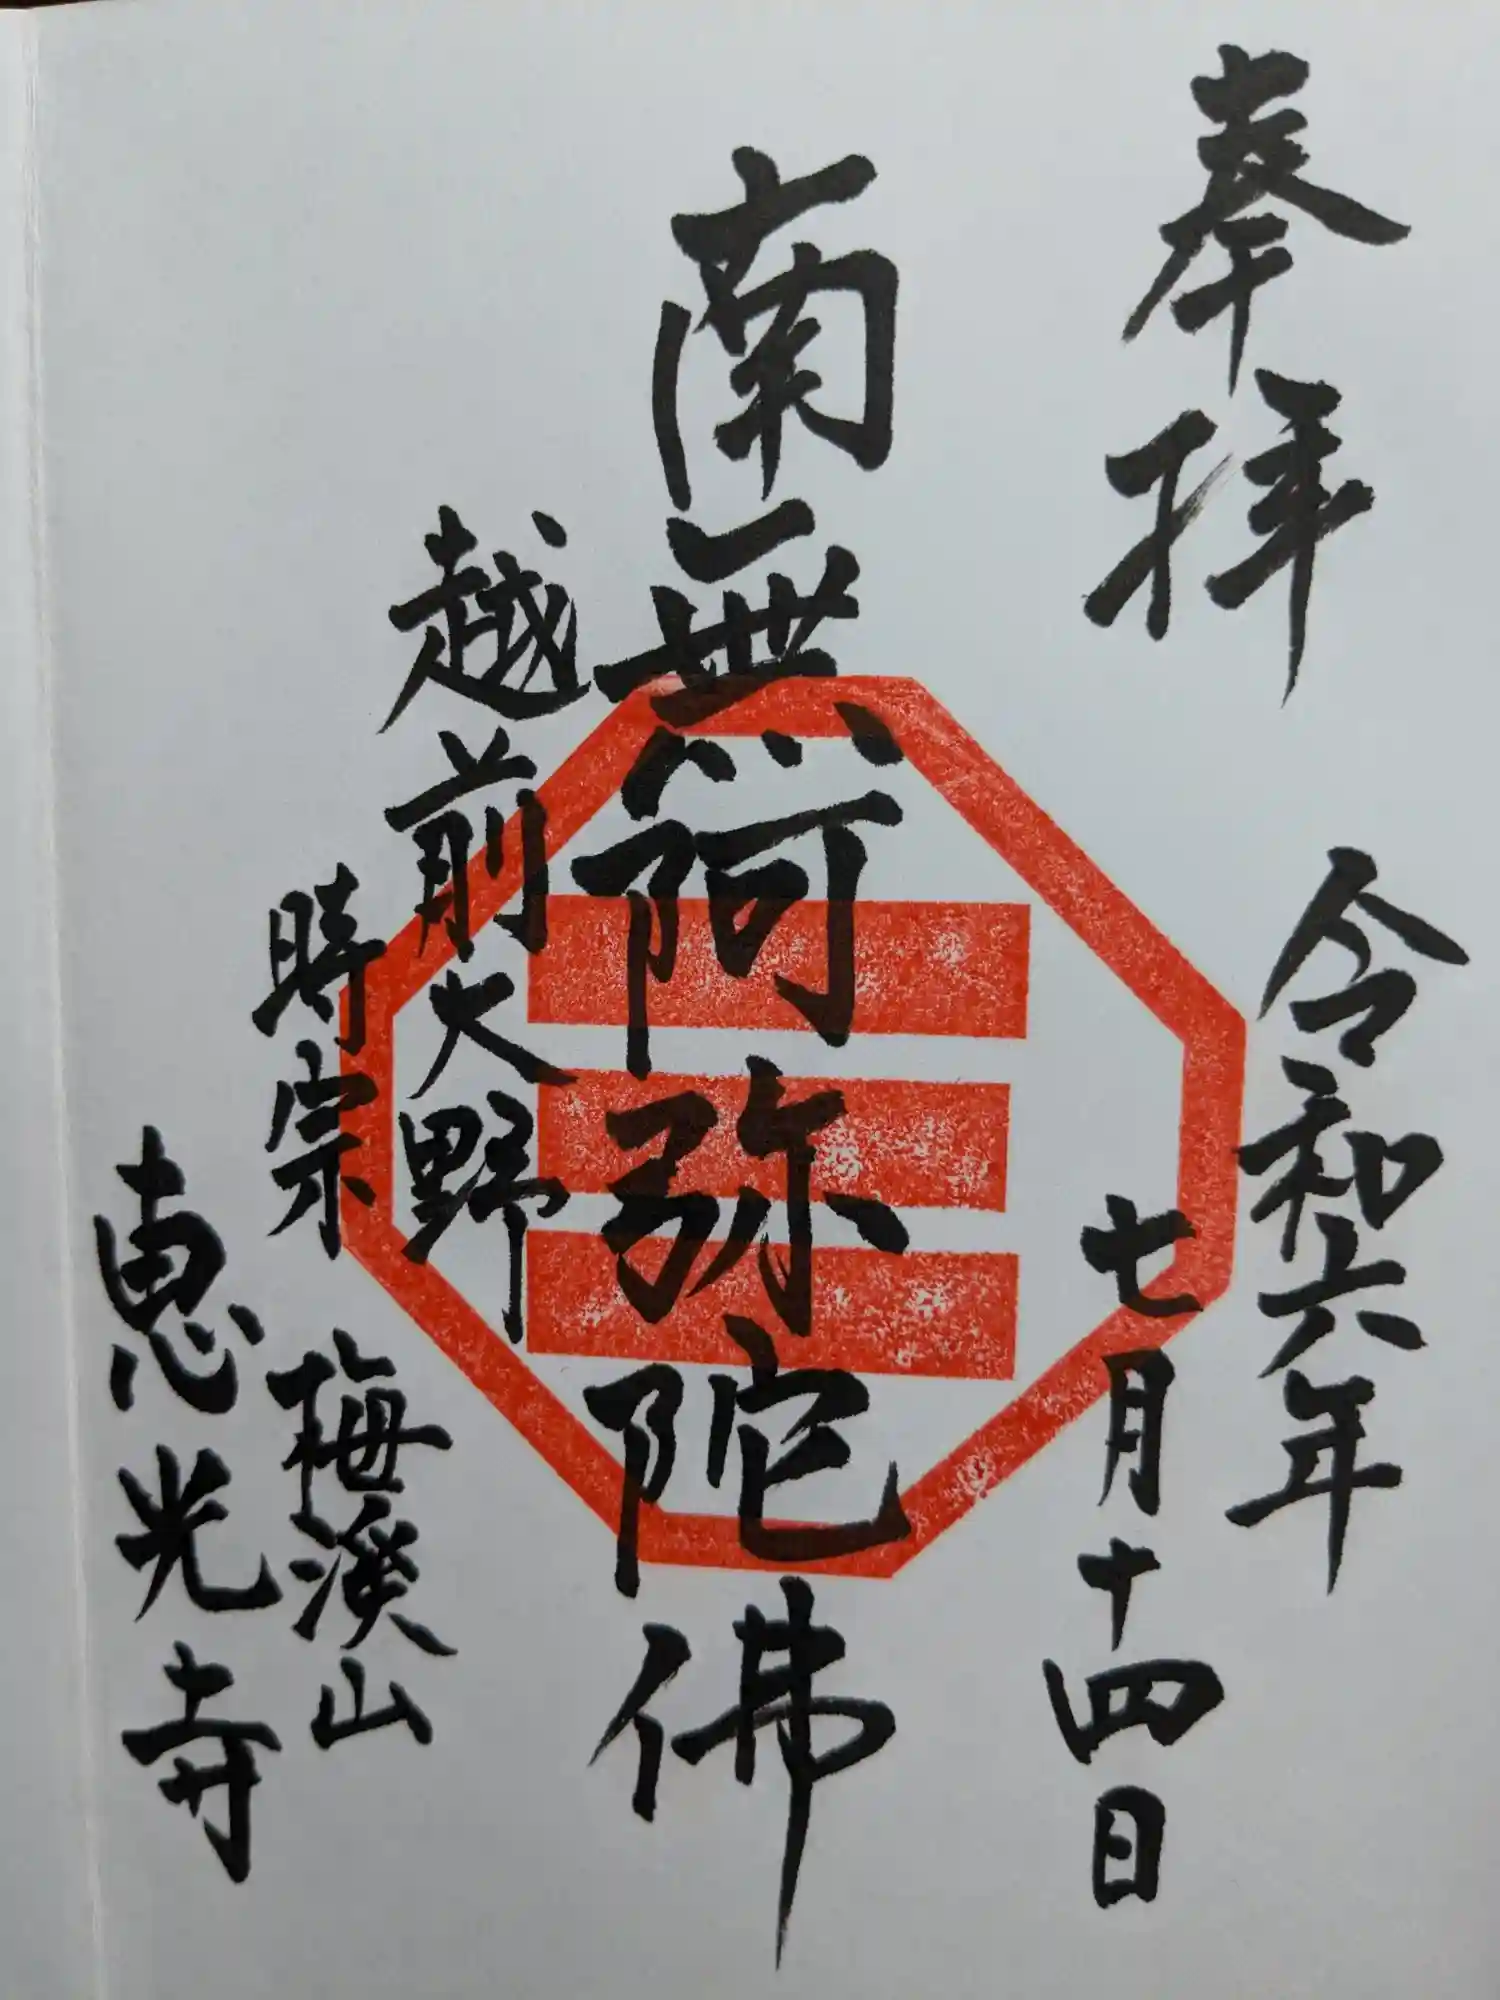 奉拝
令和六年
七月十四日
南無阿弥陀佛
越前大野
時宗
梅溪山
恵光寺